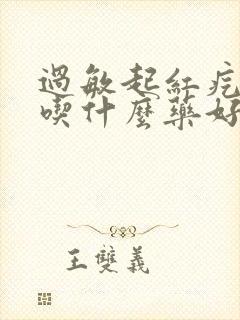 過敏起紅疙
喫什麼藥好
王雙義